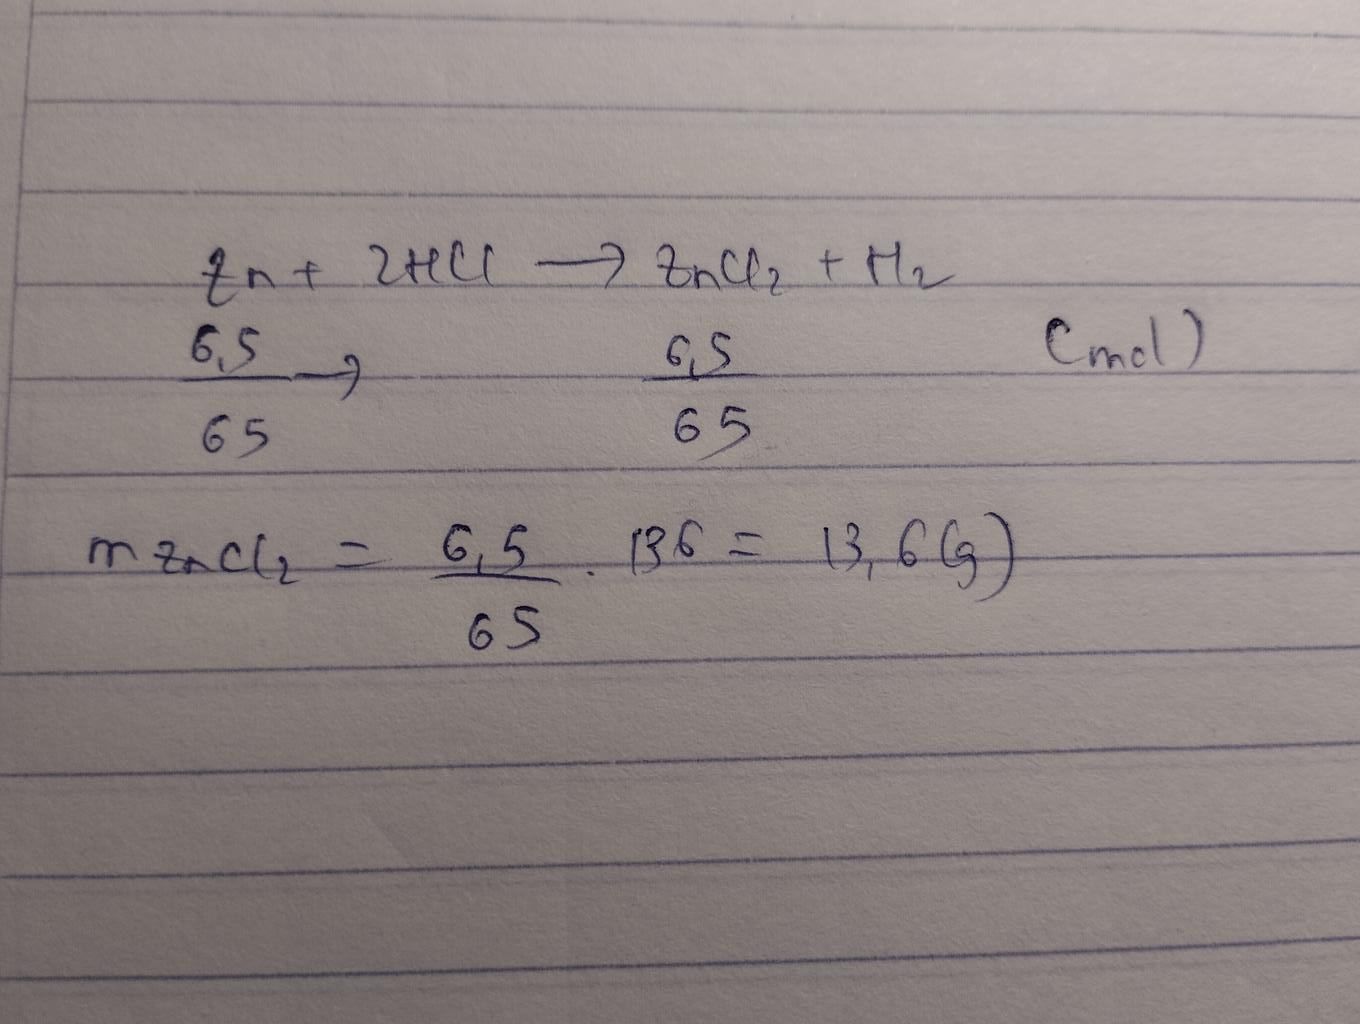 Zn + 2HCl → ZnCl₂ + H₂
6,5/65 → 6,5/65 (mol)
m ZnCl₂ = 6,5/65 . 136 = 13,6 (g)